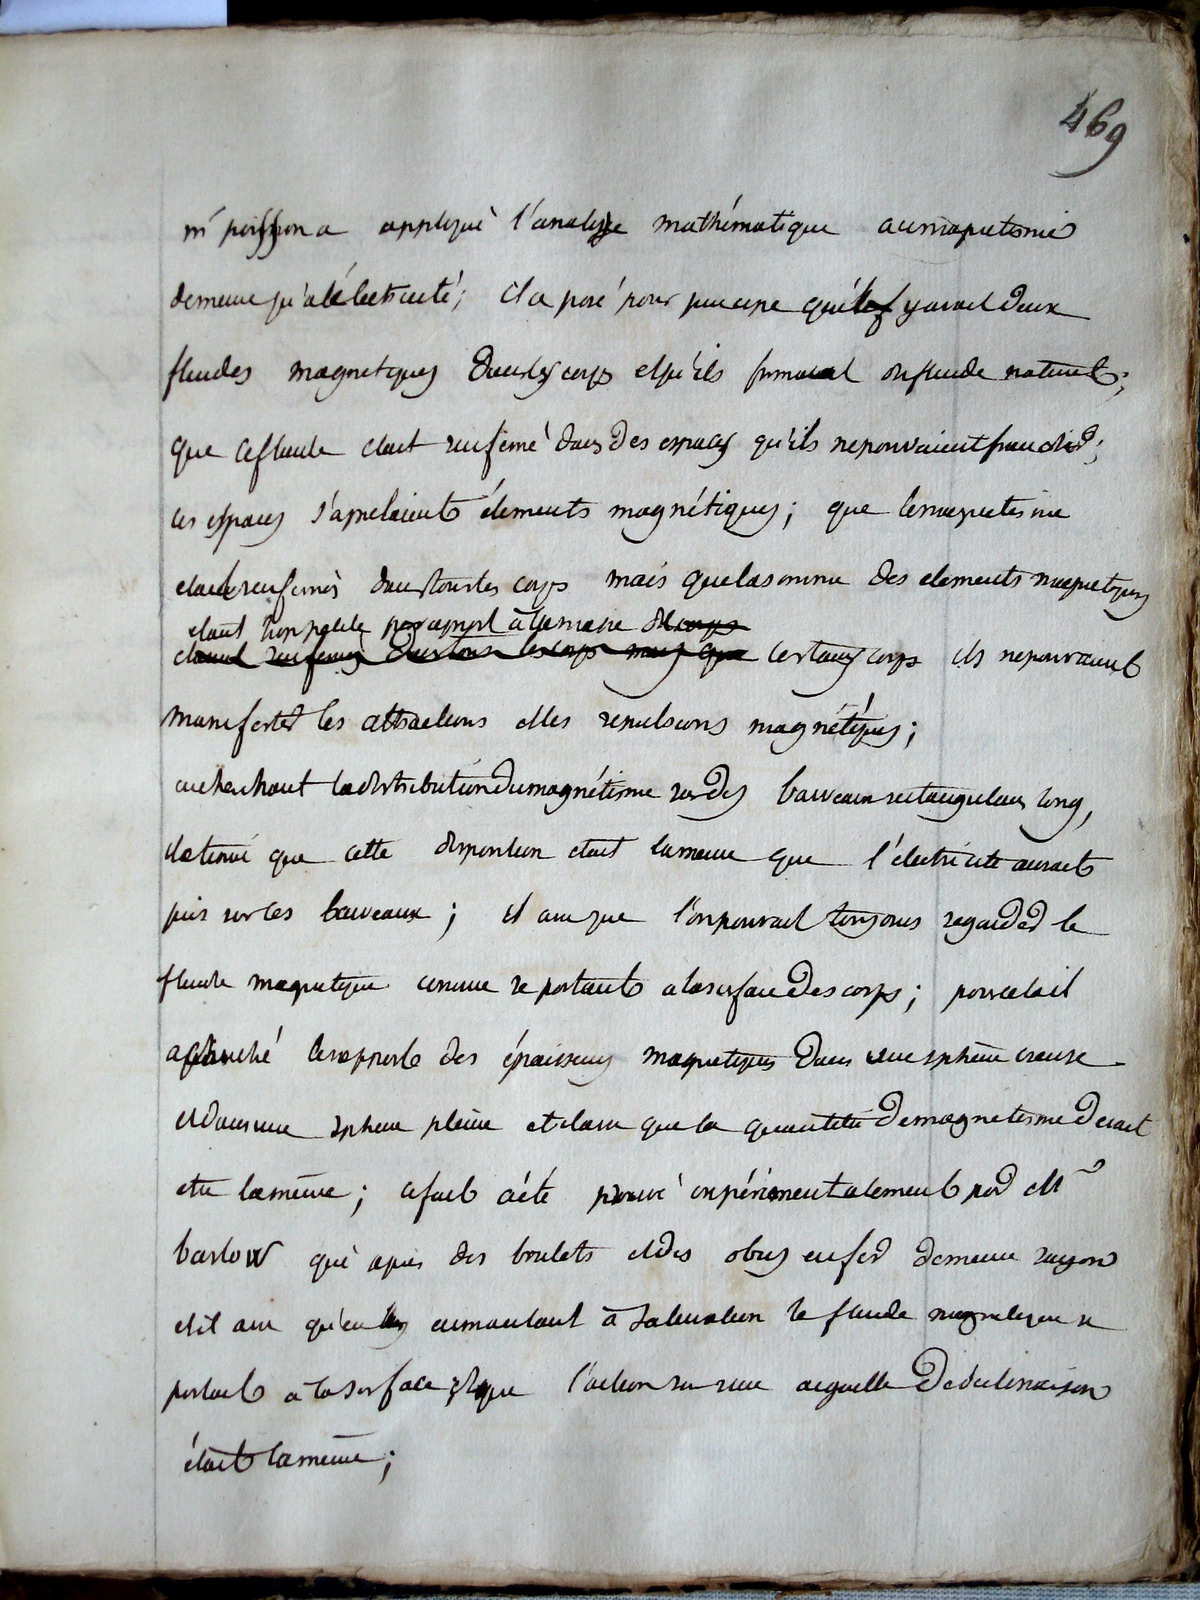 469
mr poisson a appliqué l'analyse mathématique au magnetisme
de meme qu'a l'électricité; il a posé pour principe qu'il y avait deux
fluides magnetiques dans les corps et qu'ils formaient un fluide naturel;
que ce fluide etait renfermé dans des espaces qu'ils ne pouvaient franchir;
ces espaces s'apelaient élements magnétiques; que le magnetisme
etait renfermé dans tous les corps mais que la somme des elements magnetiques
etant trop petite par raport à la masse de corps
etaient renfermés dans tous les corps mais que certains corps ils ne pouvaient
manifester les attractions et les repulsions magnétiques;
en cherchant la distribution du magnétisme sur des barreaux rectangulaires long,
il a trouvé que cette disposition etait la meme que l'électricité aurait
pris sur ces barreaux; il a vu que l'on pouvait toujours regarder le
fluide magnetique comme se portant a la surface des corps; pour cela il
a cherché le rapport des épaisseurs magnetiques dans une sphère creuse
et dans une sphere pleine et il a vu que la quantitée de magnetisme devait
etre la même; ce fait a été prouvé expérimentalement par Mr
barlow qui a pris des boulets et des obus en fer de meme rayon
et il a vu qu'en les aimantant à saturation le fluide magnetique se
portait a la surface et que l'action sur une aiguille de déclinaison
était la meme;